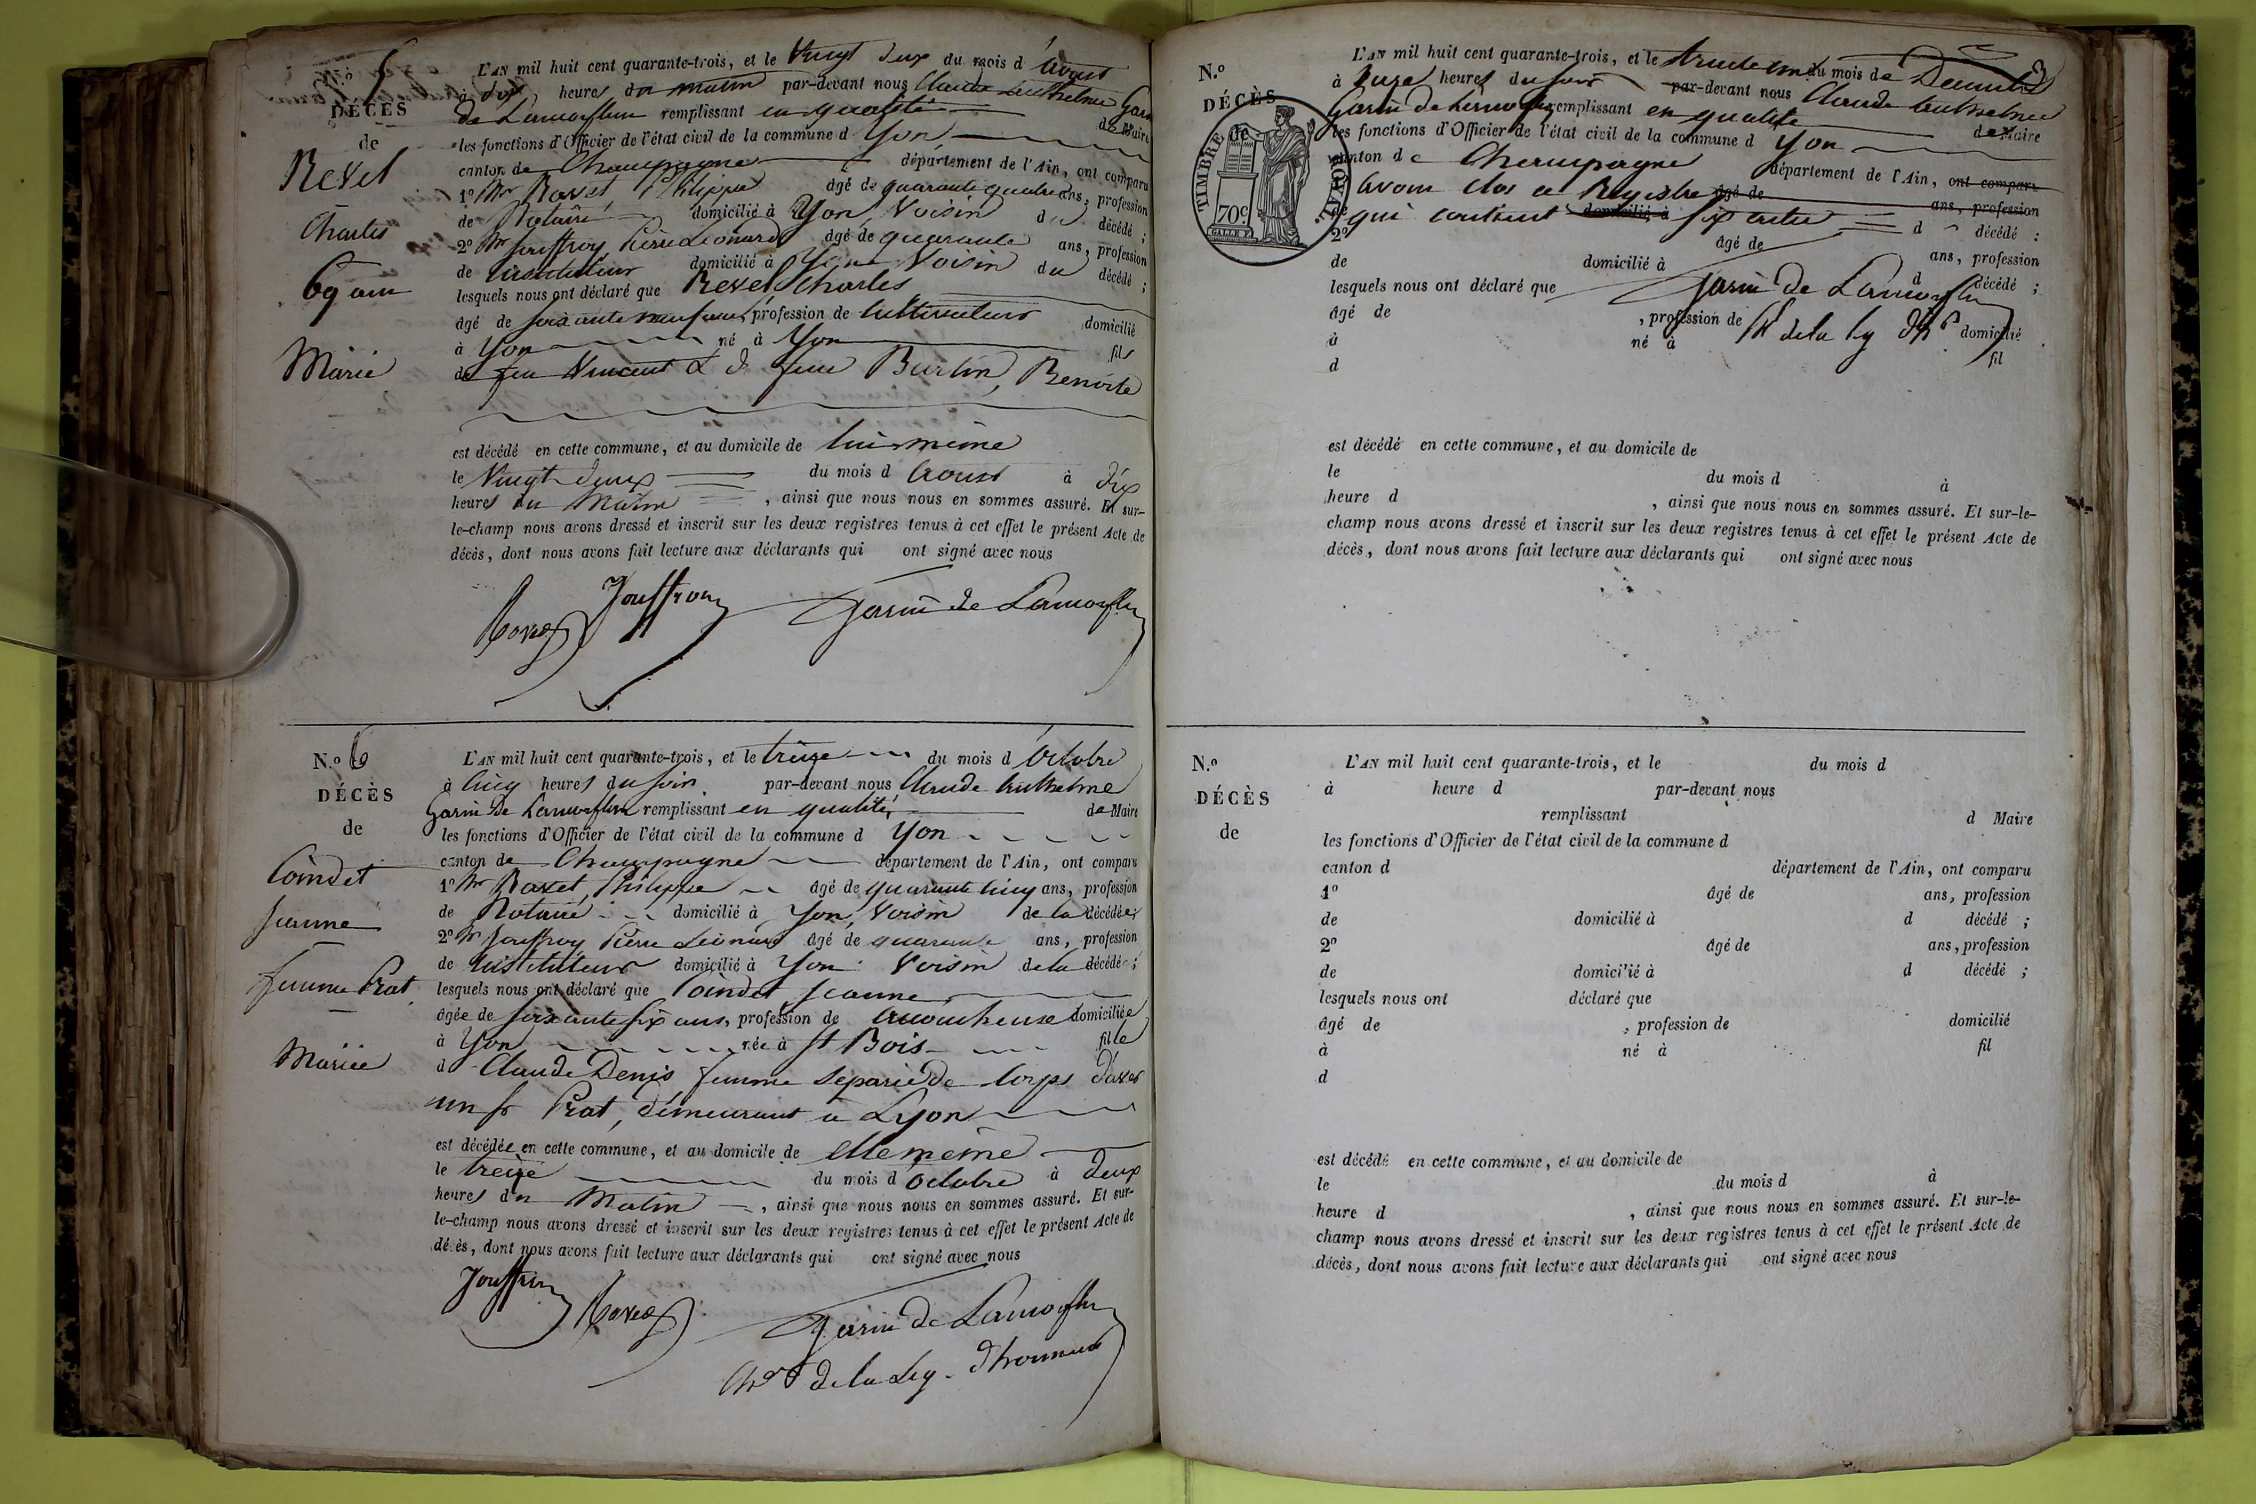 N.o 5
DÉCÈS
de
Revel
Charles
69 ans
Marié
L'AN mil huit cent quarante-trois, et le Vingt deux du mois d'Aoust
à dix heures du matin par-devant nous Claude Anthelme Garin
de Lamorflan remplissant en qualité de Maire
les fonctions d'Officier de l'état civil de la commune d Yon
canton de Champagne département de l'Ain, ont comparu
1o Mr Ravet Philippe âgé de quarante quatre ans, profession
de Notaire domicilié à Yon, Voisin du décédé ;
2o Mr Jouffroy Pierre Léonard âgé de quarante ans, profession
de instituteur domicilié à Yon Voisin du décédé ;
lesquels nous ont déclaré que Revel Charles
âgé de soixante neuf ans, profession de cultivateur domicilié
à Yon né à Yon fils
de feu Vincent & d feue Burtin, Benoite
est décédé en cette commune, et au domicile de lui même
le Vingt deux du mois d Aoust à dix
heures du Matin, ainsi que nous nous en sommes assuré. Et sur-
le-champ nous avons dressé et inscrit sur les deux registres tenus à cet effet le présent Acte de
décès, dont nous avons fait lecture aux déclarants qui ont signé avec nous
Ravet Jouffroy Garin de Lamorflan
N.o 6
DÉCÈS
de
Coindet
Jeanne
femme Prat
Mariée
L'AN mil huit cent quarante-trois, et le treize du mois d'Octobre
à cinq heures du soir par-devant nous Claude Anthelme
Garin De Lamorflan remplissant en qualité de Maire
les fonctions d'Officier de l'état civil de la commune d Yon
canton de Champagne département de l'Ain, ont comparu
1o Mr Ravet Philippe âgé de quarante cinq ans, profession
de Notaire domicilié à Yon, Voisin de la décédée;
2o Mr Jouffroy Pierre Léonard âgé de quarante ans, profession
de instituteur domicilié à Yon Voisin de la décédée ;
lesquels nous ont déclaré que Coindet Jeanne
âgée de soixante six ans, profession de accoucheuse domiciliée
à Yon née à St Bois fille
d Claude Denis femme séparée de corps d'avec
un sr Prat, démeurant à Lyon
est décédée en cette commune, et au domicile de elle même
le treize du mois d'octobre à deux
heures du Matin, ainsi que nous nous en sommes assuré. Et sur-
le-champ nous avons dressé et inscrit sur les deux registres tenus à cet effet le présent Acte de
décès, dont nous avons fait lecture aux déclarants qui ont signé avec nous
Jouffroy Ravet Garin de Lamorflan
Chr de la Leg. d'honneur
N.o
DÉCÈS
de
TIMBRE ROYAL
70c
L'AN mil huit cent quarante-trois, et le trente un du mois de Décembre
à onze heures du soir par-devant nous Claude Anthelme
Garin de Lamorflan remplissant en qualité de Maire
les fonctions d'Officier de l'état civil de la commune d Yon
canton de Champagne département de l'Ain, ont comparu
Avons clos ce Registre âgé de ans, profession
qui contient domicilié à six actes d décédé ;
2o âgé de ans, profession
de domicilié à d décédé ;
lesquels nous ont déclaré que Garin de Lamorflan
âgé de , profession de Chr de la Lg d'hr domicilié
à né à fil
d
est décédé en cette commune, et au domicile de
le du mois d à
heure d , ainsi que nous nous en sommes assuré. Et sur-le-
champ nous avons dressé et inscrit sur les deux registres tenus à cet effet le présent Acte de
décès, dont nous avons fait lecture aux déclarants qui ont signé avec nous
N.o
DÉCÈS
de
L'AN mil huit cent quarante-trois, et le du mois d
à heure d par-devant nous
remplissant d Maire
les fonctions d'Officier de l'état civil de la commune d
canton d département de l'Ain, ont comparu
1o âgé de ans, profession
de domicilié à d décédé ;
2o âgé de ans, profession
de domicilié à d décédé ;
lesquels nous ont déclaré que
âgé de , profession de domicilié
à né à fil
d
est décédé en cette commune, et au domicile de
le du mois d à
heure d , ainsi que nous nous en sommes assuré. Et sur-le-
champ nous avons dressé et inscrit sur les deux registres tenus à cet effet le présent Acte de
décès, dont nous avons fait lecture aux déclarants qui ont signé avec nous